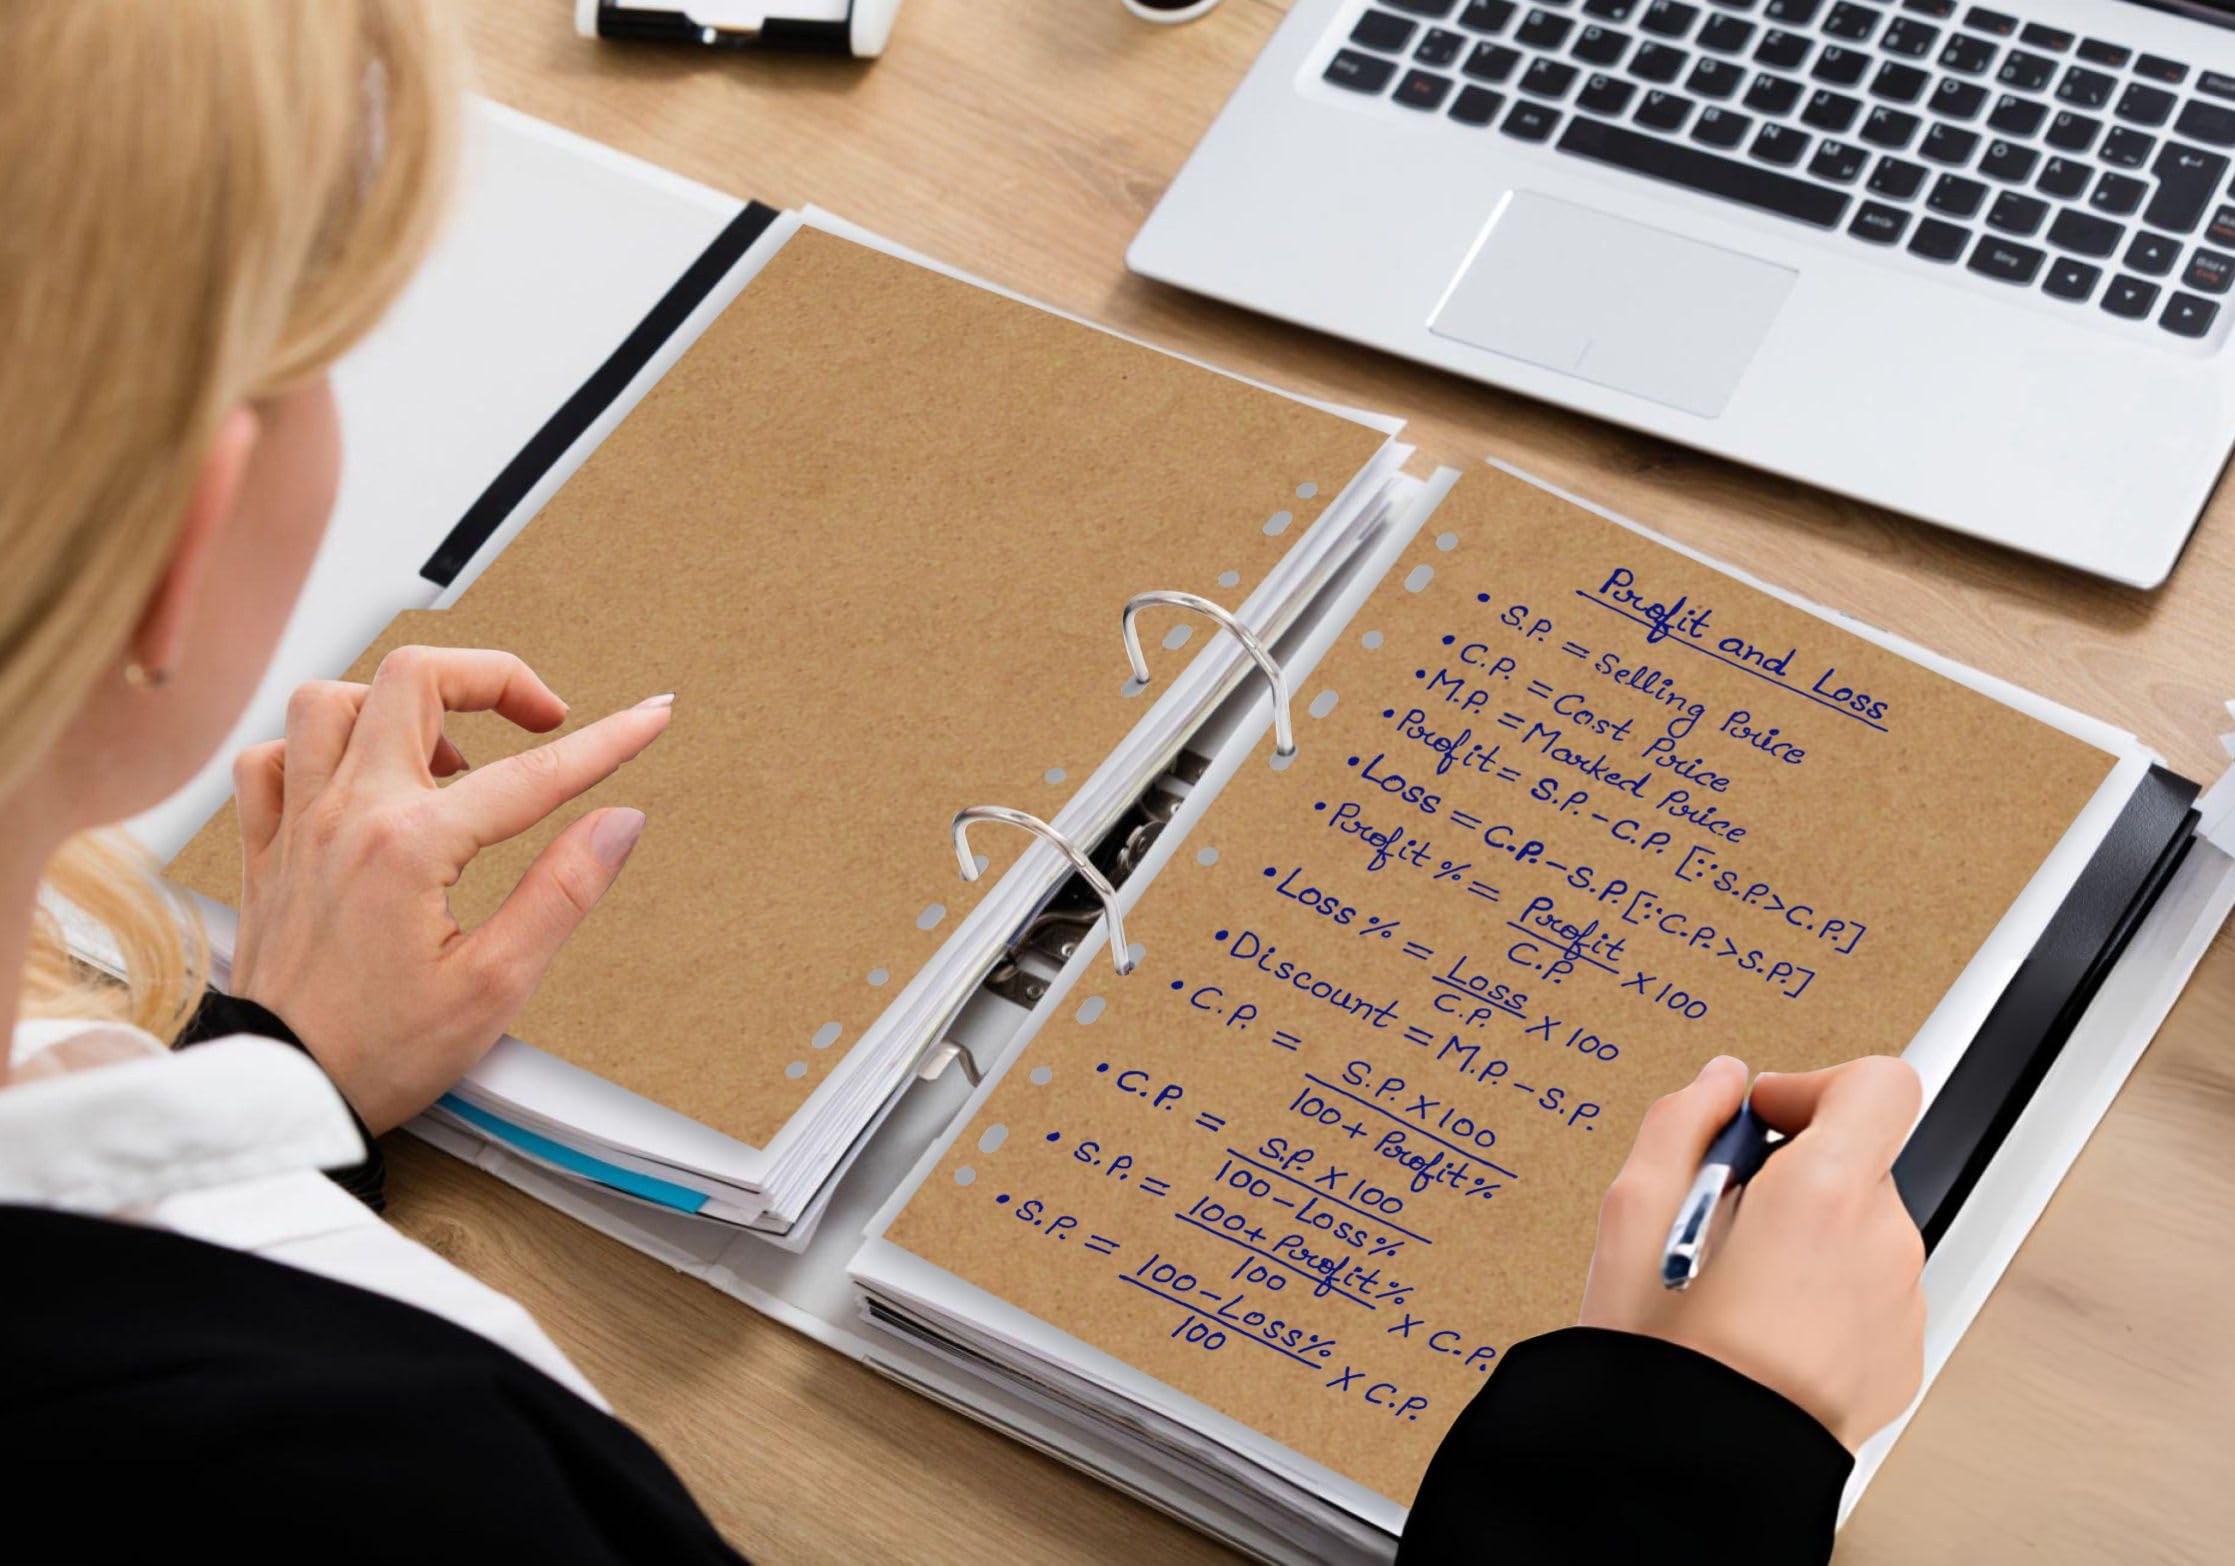 Profit and Loss
• S.P. = Selling Price
• C.P. = Cost Price
• M.P. = Marked Price
• Profit = S.P. - C.P. [∵ S.P. > C.P.]
• Loss = C.P. - S.P. [∵ C.P. > S.P.]
• Profit % = Profit/C.P. X 100
• Loss % = Loss/C.P. X 100
• Discount = M.P. - S.P.
• C.P. = S.P. X 100/100 + Profit%
• C.P. = S.P. X 100/100 - Loss%
• S.P. = 100 + Profit%/100 X C.P.
• S.P. = 100 - Loss%/100 X C.P.